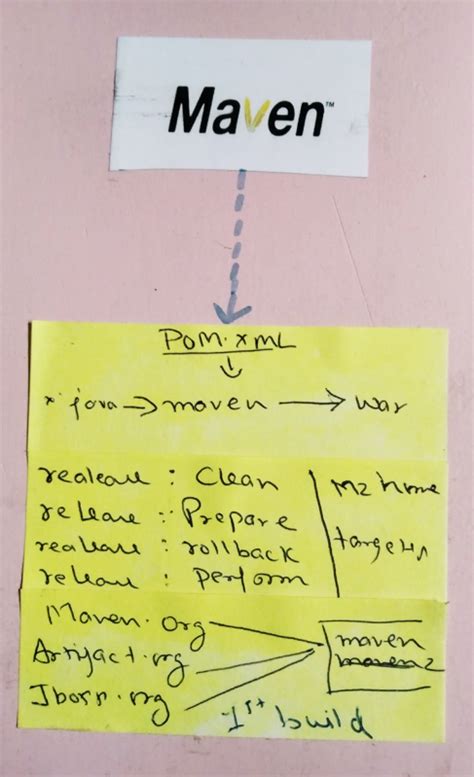 Maven™
POM.xml
*.java → maven → war
realease : Clean
release :: Prepare
realease : rollback
release : perform
M2 home
targets
Maven.org
Artifact.org
Jboss.org
maven
maven2
1st build